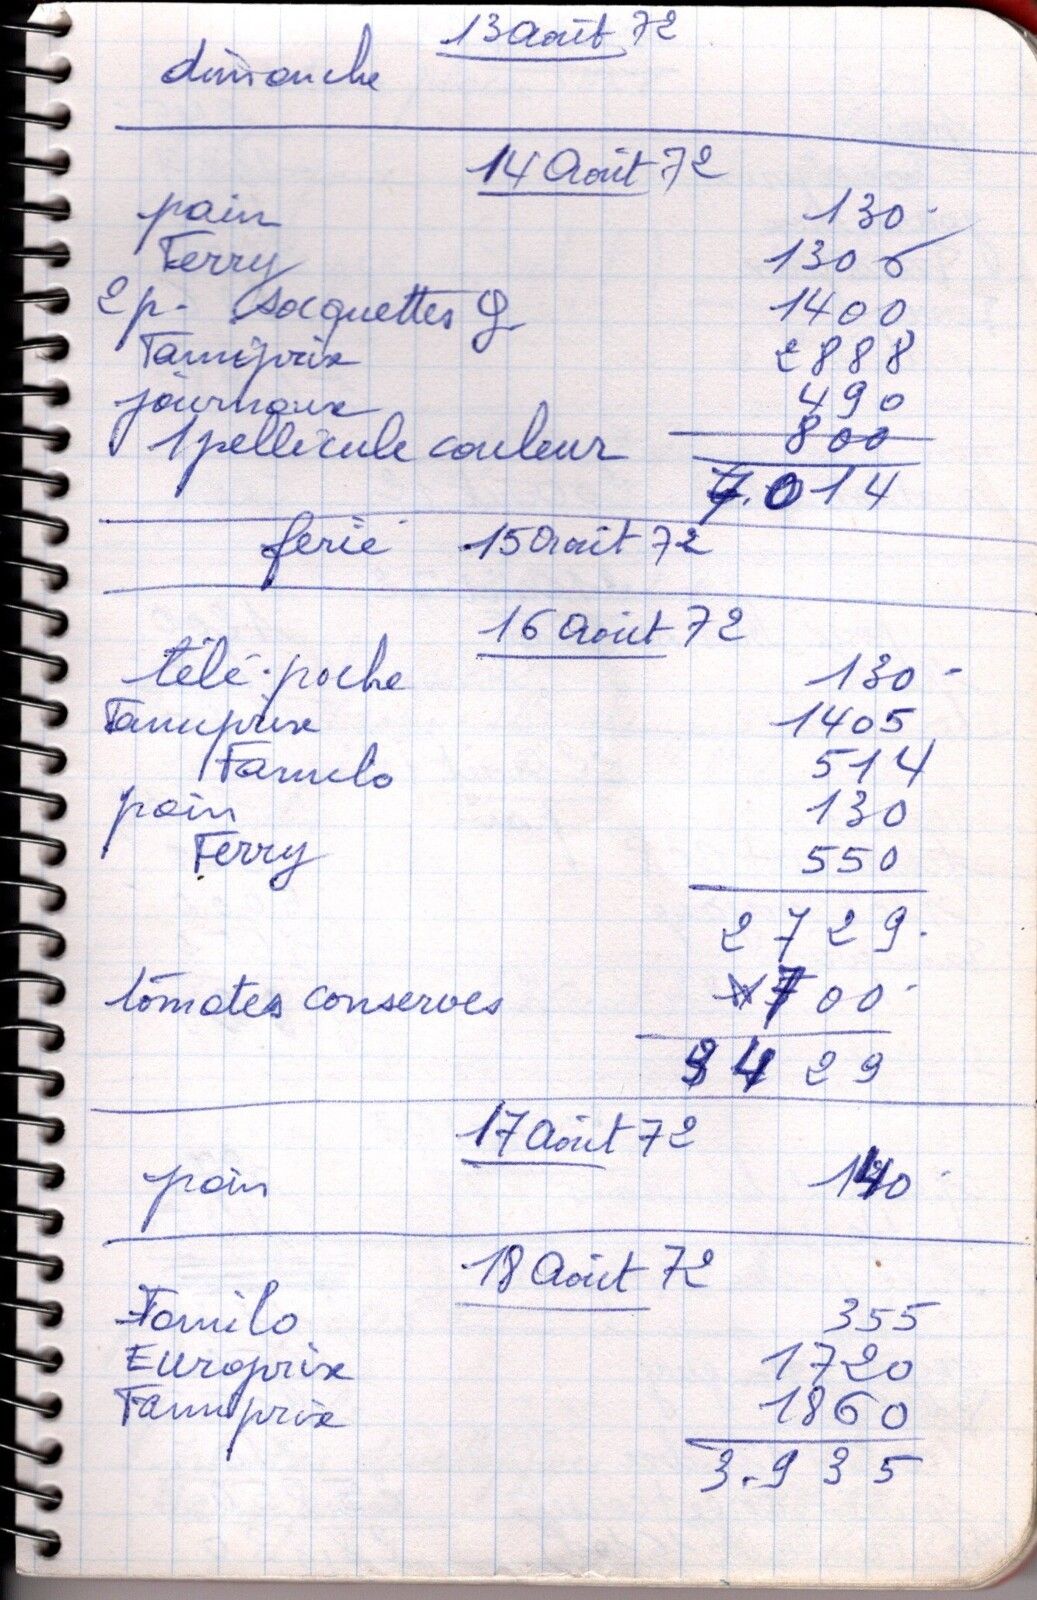 13 Août 72
dimanche
14 Août 72
pain 130
Ferry 1306
2 p. socquettes 1400
Famiprix 2888
journaux 490
1 pellicule couleur 800
7.014
ferié 15 Août 72
16 Août 72
télé-poche 130
Famiprix 1405
Familo 514
pain 130
Ferry 550
2729
tomates conserves 700
3429
17 Août 72
pain 140
18 Août 72
Familo 355
Europrix 1720
Famiprix 1860
3.935